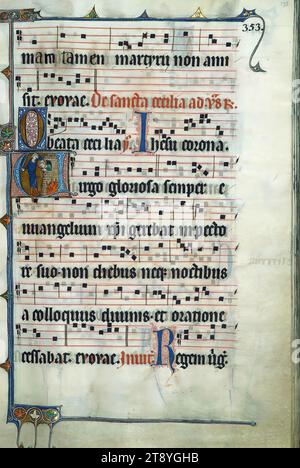 353.
mam tamen martyrii non ami
sit. evovae. De sancta cecilia ad vs R.
O beata cecilia ps. Ihesu corona.
Uirgo gloriosa semper e
uuangelium xpi gerebat in pecto
re suo non diebus neqz noctibus
a colloquiis diuinis et oratione
cessabat. evovae. Inuit. Regem uirg.
alamy
Image ID: 2T8YGHB
www.alamy.com